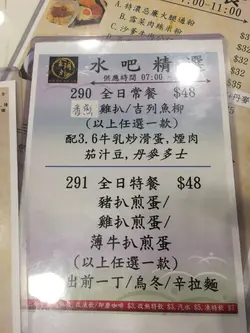 -11:00
A.特濃忌廉火腿通粉
B.雪菜肉絲米粉
C.沙爹
水吧精選
供應時間 07:00-
290 全日常餐 $48
雞扒/吉列魚柳
(以上任選一款)
配3.6牛乳炒滑蛋,煙肉
茄汁豆,丹麥多士
291 全日特餐 $48
豬扒煎蛋/
雞扒煎蛋/
薄牛扒煎蛋
(以上任選一款)
出前一丁/烏冬/辛拉麵